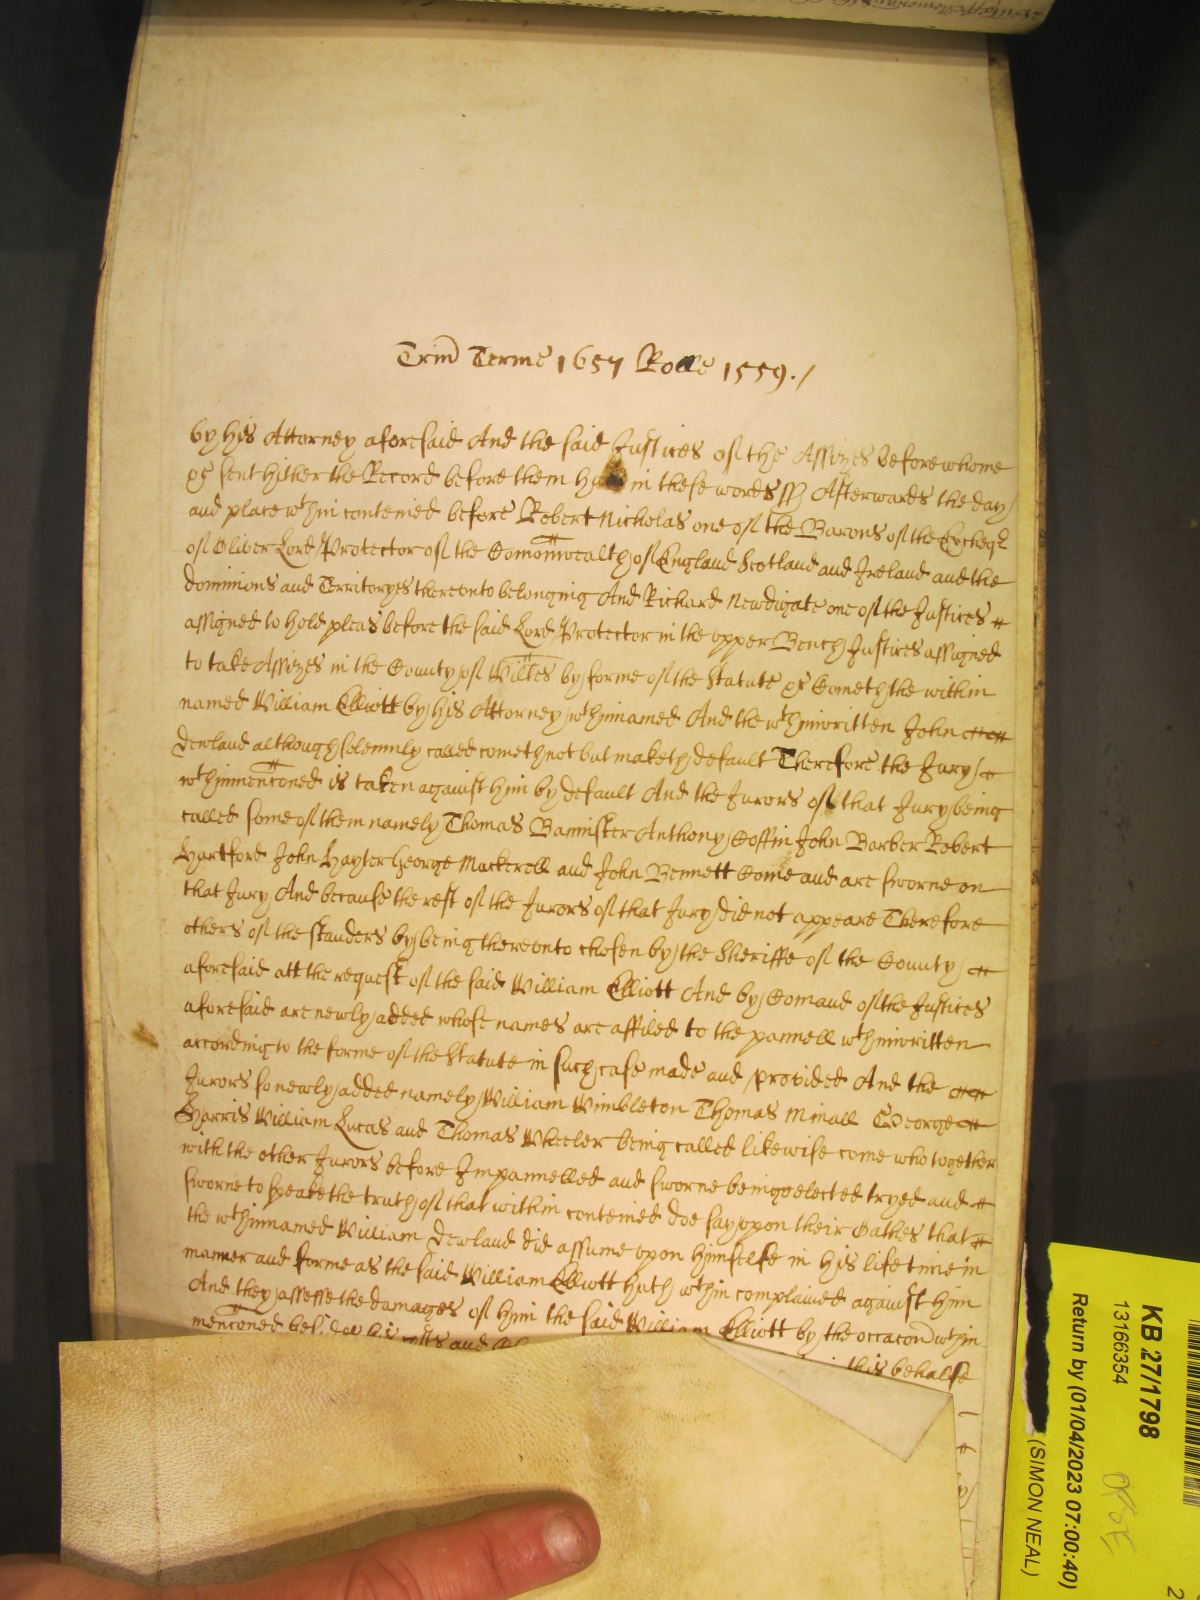 Trin Terme 1657 Rolle 1559./
by his Attorney aforesaid And the said Justices of the Assizes before whome
&c sent hither the Record before them had in these words ss Afterwards the day
and place wthin conteined before Robert Nicholas one of the Barons of the Excheqr
of Oliver Lord Protector of the Comonwealth of England Scotland and Ireland and the
dominions and Territoryes thereonto belonging And Richard Newdigate one of the Justices
assigned to hold pleas before the said Lord Protector in the upper Bench Justices assigned
to take Assizes in the County of Wiltes by forme of the Statute &c Cometh the within
named William Elliott by his Attorney wthinnamed And the wthinwritten John
Dewland although solemnly called cometh not but maketh default Therefore the Jury
wthinmenconed is taken against him by default And the Jurors of that Jury being
called some of them namely Thomas Bannister Anthony Coffin John Barber Robert
Hartford John Hayter George Mackerell and John Bennett Come and are sworne on
that Jury And because the rest of the Jurors of that Jury did not appeare Therefore
others of the standers by being thereonto chosen by the Sheriffe of the County
aforesaid att the request of the said William Elliott And by Comaund of the Justices
aforesaid are newly added whose names are affiled to the pannell wthinwritten
according to the forme of the Statute in such case made and provided And the
Jurors so newly added namely William Wimbleton Thomas Minall George
Harris William Lucas and Thomas Wheeler being called likewise come who together
with the other Jurors before Impannelled and sworne being elected tryed and
sworne to speake the truth of that within conteined doe say upon their Oathes that
the wthinnamed William Dewland did assume upon himselfe in his life time in
manner and forme as the said William Elliott hath wthin complained against him
And they assesse the damages of him the said William Elliott by the occacon wthin
menconed and this behalfe
KB 27/1798
13166354
Return by (01/04/2023 07:00:40)
(SIMON NEAL)